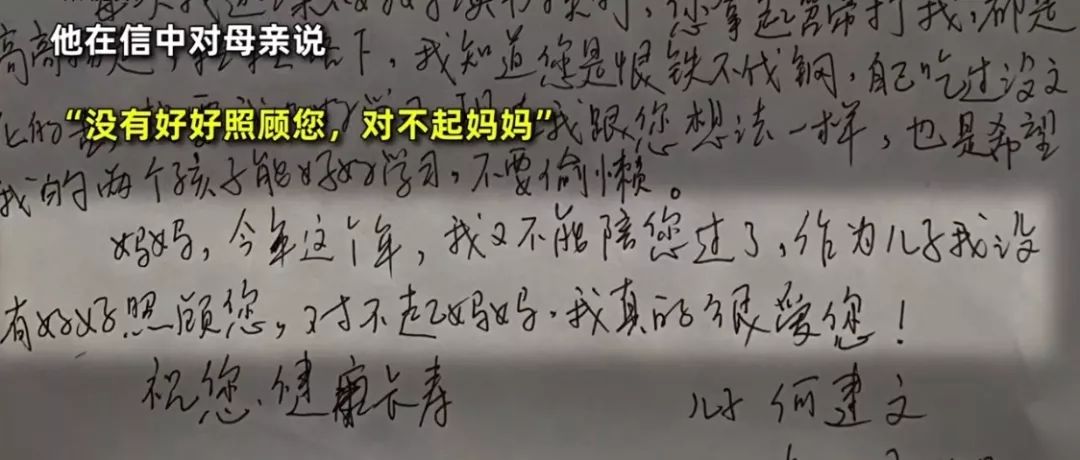 您拿起宫带打我，都是
他在信中对母亲说
下，我知道您是恨铁不代钢，自己吃过没文
“没有好好照顾您，对不起妈妈”
我跟您想法一样，也是希望
我的两个孩子能好好学习，不要偷懒。
妈妈，今年这个年，我又不能陪您过了，作为儿子我没
有好好照顾您，对不起妈妈。我真的很爱您！
祝您、健康长寿
儿子 何建文